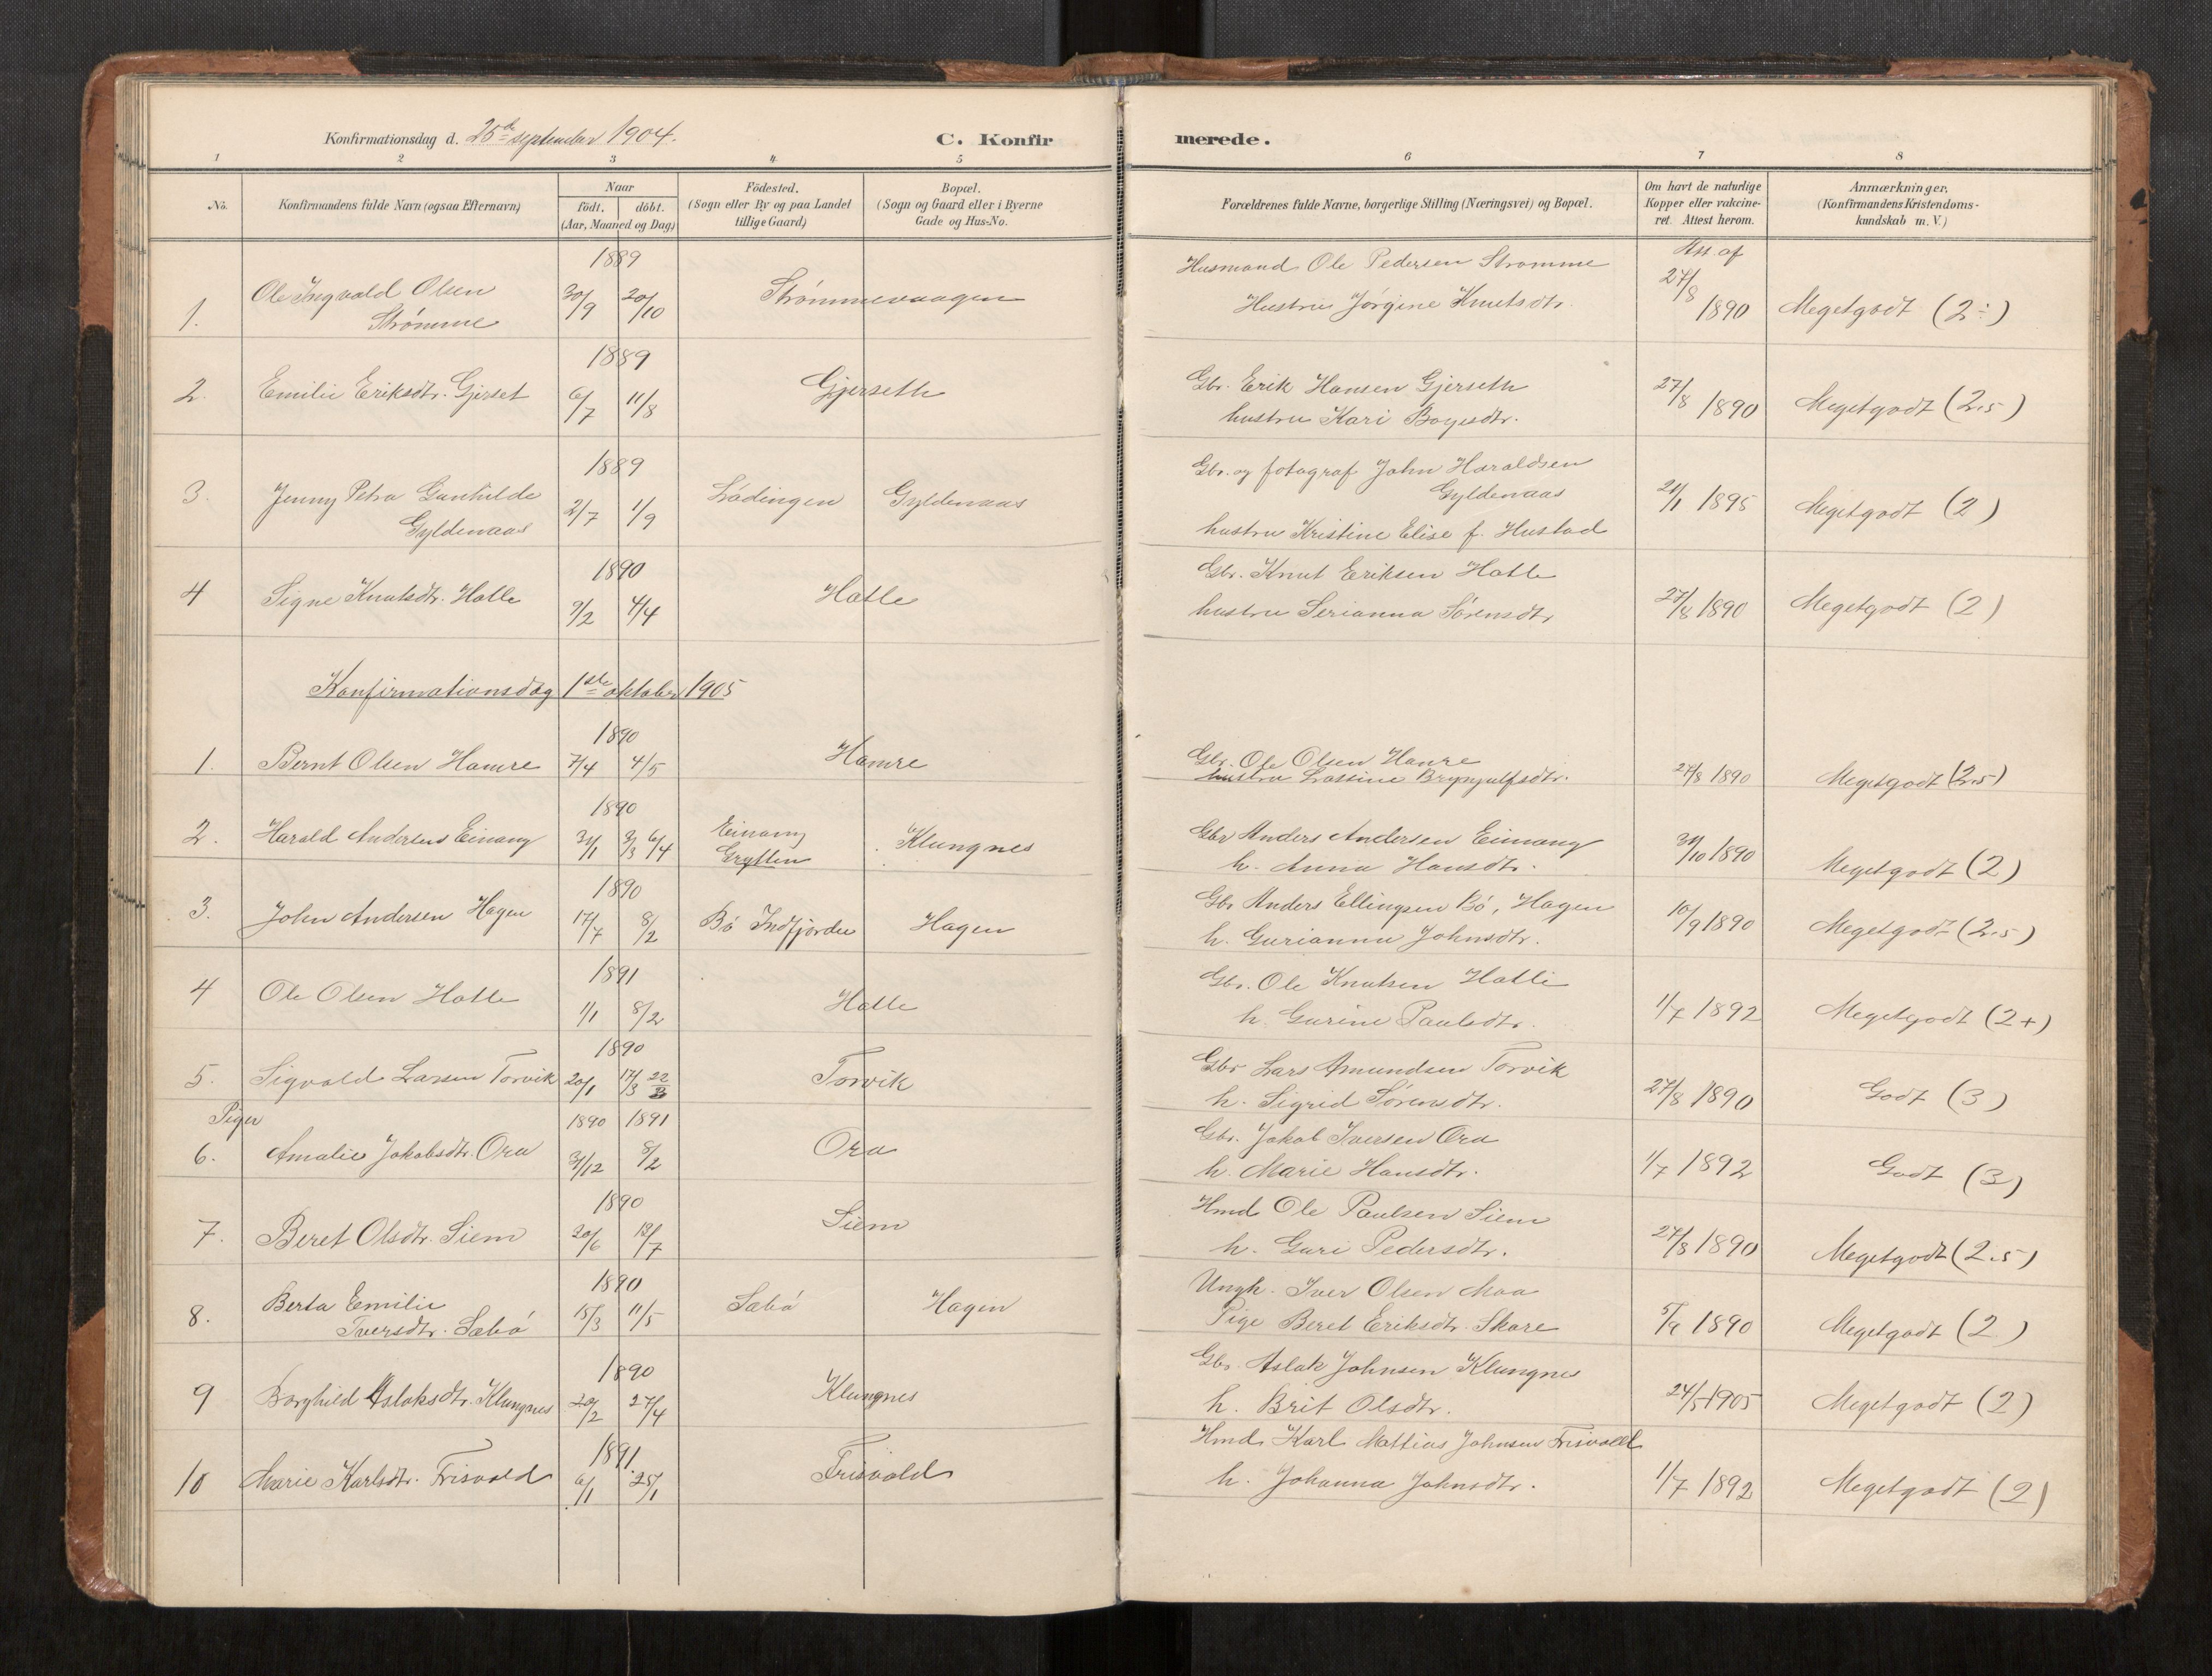 Konfirmationsdag d. 25de september 1904.
C. Konfirmerede.
1 2 3 4 5 6 7 8
No.
Konfirmandens fulde Navn (ogsaa Efternavn)
Naar
födt. döbt.
(Aar, Maaned og Dag)
Födested.
(Sogn eller By og paa Landet
tillige Gaard)
Bopæl.
(Sogn og Gaard eller i Byerne
Gade og Hus-No.
Forældrenes fulde Navne, borgerlige Stilling (Næringsvei) og Bopæl.
Om havt de naturlige
Kopper eller vakcine-
ret. Attest herom.
Anmærkninger.
(Konfirmandens Kristendoms-
kundskab m. V.)
1889
Husmand Ole Pedersen Strømme
Att. af
1. Ole Ingvald Olsen 30/9 20/10 Strømmevaagen
Strømme
Hustru Jørgine Knutsdtr.
27/8 1890 Megetgodt (2÷)
1889
2. Emilie Eriksdtr. Gjerset 6/7 11/8 Gjerseth
Gbr. Erik Hansen Gjerseth
hustru Kari Boyesdtr.
27/8 1890 Megetgodt (2.5)
1889
3. Jenny Petra Gunhilde 2/7 1/9 Lödingen Gyldenaas
Gyldenaas
Gbr. og fotograf John Haraldsen
Gyldenaas
hustru Kristine Elise f. Hustad
21/1 1895 Megetgodt (2)
1890
4 Signe Knutsdtr. Hatle 9/2 4/4 Hatle
Gbr. Knut Eriksen Hatle
hustru Serianna Sørensdtr.
27/8 1890 Megetgodt (2)
Konfirmationsdag 1ste oktober 1905
1890
1. Bernt Olsen Hamre 7/4 4/5 Hamre
Gbr. Ole Olsen Hamre
hustru Lassine Brynjulfsdtr.
27/8 1890 Megetgodt (2.5)
1890
2. Harald Andersens Einang 31/1 3/3 6/4 Einang Klungnes
Grytten
Gbr Anders Andersen Einang
h. Anna Hansdtr.
31/10 1890 Megetgodt (2)
1890
3. John Andersen Hagen 17/7 8/2 Bö Indfjorden Hagen
Gbr Anders Ellingsen Bö, Hagen
h. Gurianna Johnsdtr.
10/9 1890 Megetgodt (2.5)
1891
4 Ole Olsen Hatle 1/1 8/2 Hatle
Gbr. Ole Knutsen Hatle
h. Gurine Paulsdtr.
1/7 1892 Megetgodt (2+)
1890
5. Sigvald Larsen Torvik 20/1 17/3 22/3 Torvik
Gbr Lars Amundsen Torvik
h. Sigrid Sørensdtr.
27/8 1890 Godt (3)
Piger
1890 1891
6. Amalie Jakobsdtr. Ora 31/12 8/2 Ora
Gbr. Jakob Iversen Ora
h. Marie Hansdtr.
1/7 1892 Godt (3)
1890
7. Beret Olsdtr. Siem 20/6 13/7 Siem
Hmd Ole Paulsen Siem
h. Guri Pedersdtr.
27/8 1890 Megetgodt (2.5)
1890
8. Berta Emilie 15/3 11/5 Sæbö Hagen
Iversdtr. Sæbö
Ungk. Iver Olsen Moa
Pige Beret Eriksdtr. Skore
5/9 1890 Megetgodt (2)
1890
9 Borghild Aslaksdtr. Klungnes 20/2 27/4 Klungnes
Gbr. Aslak Johnsen Klungnes
h. Brit Olsdtr.
24/5 1905 Megetgodt (2)
1891.
10 Marie Karlsdtr. Frisvold 6/1 25/1 Frisvold
Hmd. Karl Mattias Johnsen Frisvold
h. Johanna Johnsdtr.
1/7 1892 Megetgodt (2)